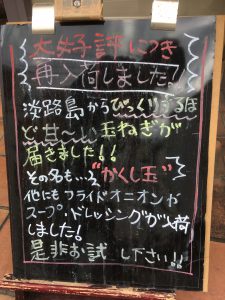 大好評につき
再入荷しました!
淡路島からびっくりするほ
ど甘〜い玉ねぎが
届きました!!
その名も...
"かくし玉"
他にもフライドオニオンや
スープ・ドレッシングが入荷
しました!
是非お試し下さい!!